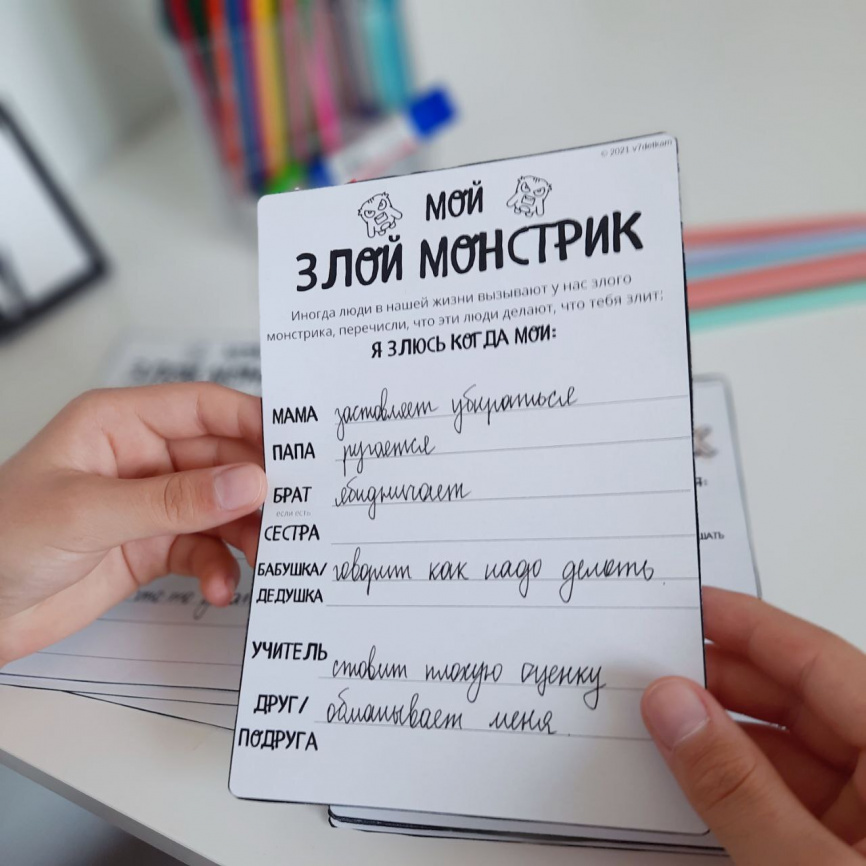 © 2021 v7detkam
МОЙ
ЗЛОЙ МОНСТРИК
Иногда люди в нашей жизни вызывают у нас злого
монстрика, перечисли, что эти люди делают, что тебя злит:
Я ЗЛЮСЬ КОГДА МОИ:
МАМА заставляет убираться
ПАПА ругается
БРАТ ябидничает
если есть
СЕСТРА
БАБУШКА/ говорит как надо делать.
ДЕДУШКА
УЧИТЕЛЬ ставит плохую оценку
ДРУГ/ обманывает меня.
ПОДРУГА